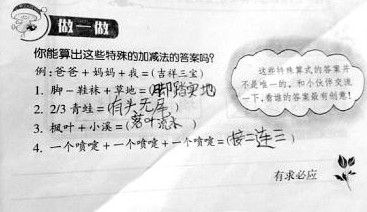 做一做
你能算出这些特殊的加减法的答案吗?
例:爸爸+妈妈+我=(吉祥三宝)
1. 脚-鞋袜+草地=(脚踏实地)
2. 2/3 青蛙=(有头无尾)
3. 枫叶+小溪=(落叶流水)
4. 一个喷嚏+一个喷嚏+一个喷嚏=(接二连三)
这些特殊算式的答案并
不是唯一的,和小伙伴交流
一下,看谁的答案最有创意!
有求必应